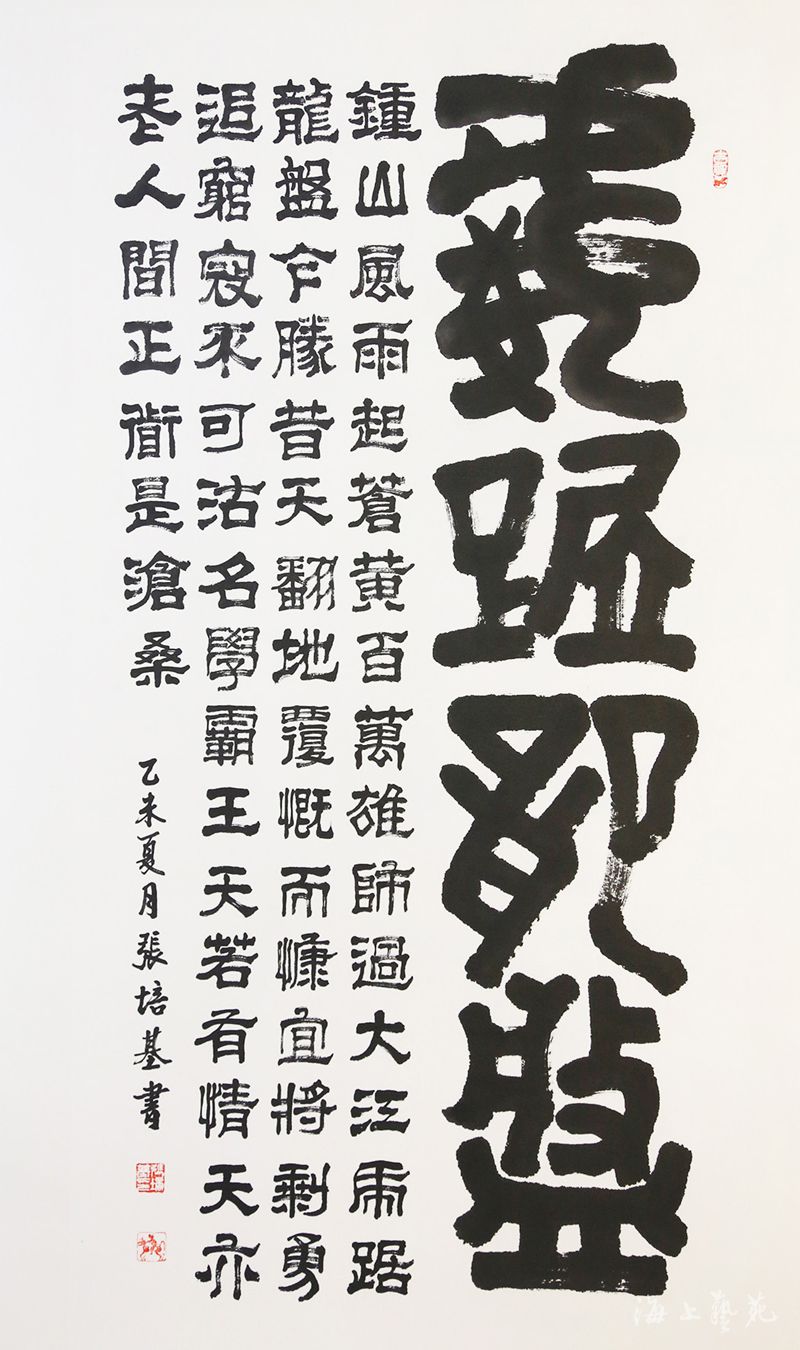 虎踞龍盤
鍾山風雨起蒼黄百萬雄師過大江虎踞
龍盤今勝昔天翻地覆慨而慷宜將剩勇
追窮寇不可沽名學霸王天若有情天亦
老人間正道是滄桑
乙未夏月張培基書
海上藝苑